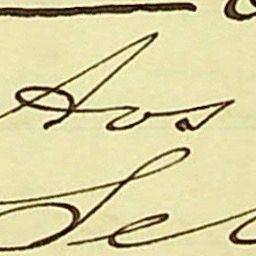 Aos
Se